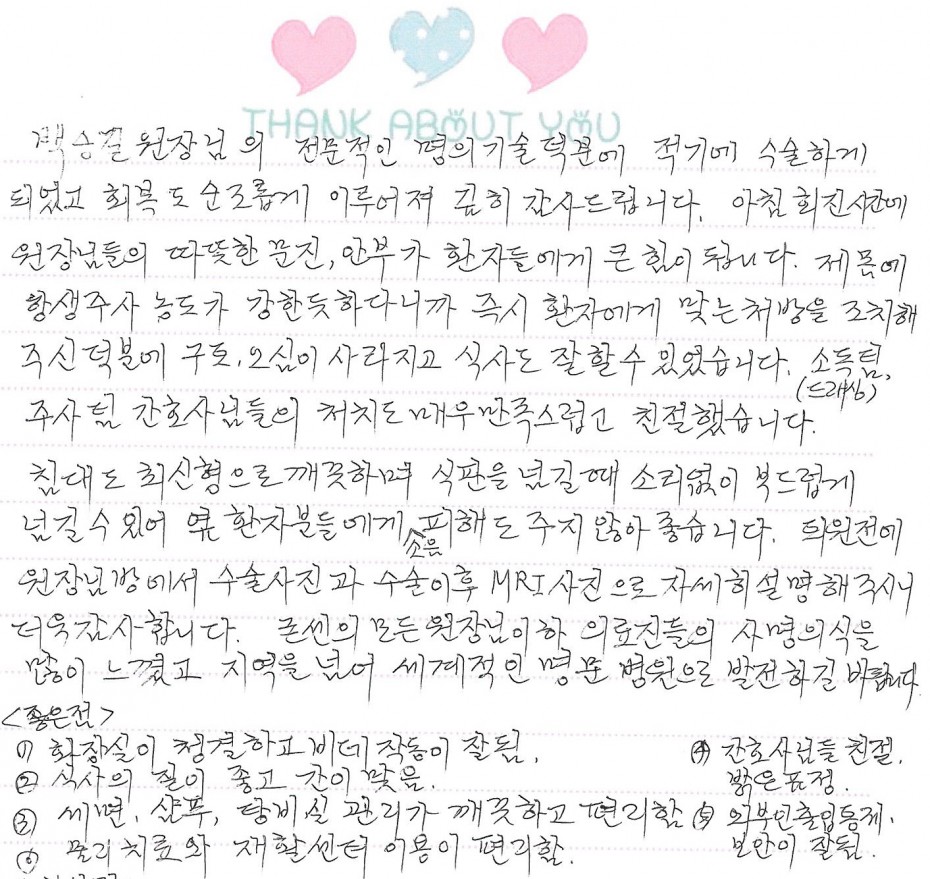 THANK ABOUT YOU
백승걸 원장님의 전문적인 명의기술덕분에 적기에 수술하게
되었고 회복도 순조롭게 이루어져 감사드립니다. 아침 회진시간에
원장님들의 따뜻한 문진, 안부가 환자들에게 큰 힘이 됩니다. 제 몸에
항생주사 농도가 강한듯하다니까 즉시 환자에게 맞는 처방을 조치해
주신 덕분에 구토, 오심이 사라지고 식사도 잘할 수 있었습니다. 소독팀,
(드레싱)
주사팀 간호사님들의 처치도 매우만족스럽고 친절했습니다.
침대도 최신형으로 깨끗하며 식판을 넘길때 소리없이 부드럽게
넘길 수 있어 옆 환자분들에게 소음 피해도 주지 않아 좋습니다. 퇴원전에
원장님방에서 수술사진과 수술이후 MRI사진으로 자세히 설명해 주시니
더욱 감사합니다. 굿센의 모든원장님이하 의료진들의 사명의식을
많이 느꼈고 지역을 넘어 세계적인 명문 병원으로 발전하길 바랍니다
<좋은점>
① 화장실이 청결하고 비데 작동이 잘됨.
② 식사의 질이 좋고 간이 맞음.
③ 세면, 샴푸, 탕비실 관리가 깨끗하고 편리함
물리치료와 재활센터 이용이 편리함.
④ 간호사님들 친절.
밝은 표정.
외부인출입통제.
보안이 잘됨.